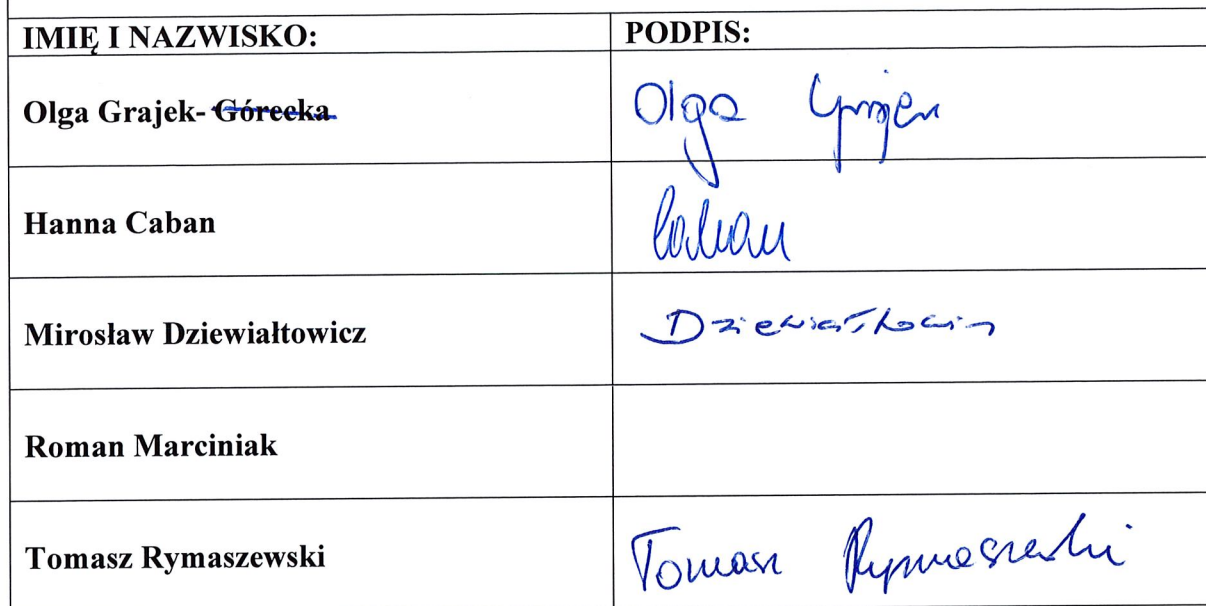 IMIĘ I NAZWISKO: PODPIS:
Olga Grajek- Górecka Olga Grajek
Hanna Caban Caban
Mirosław Dziewiałtowicz Dziewiałtowicz
Roman Marciniak
Tomasz Rymaszewski Tomasz Rymaszewski